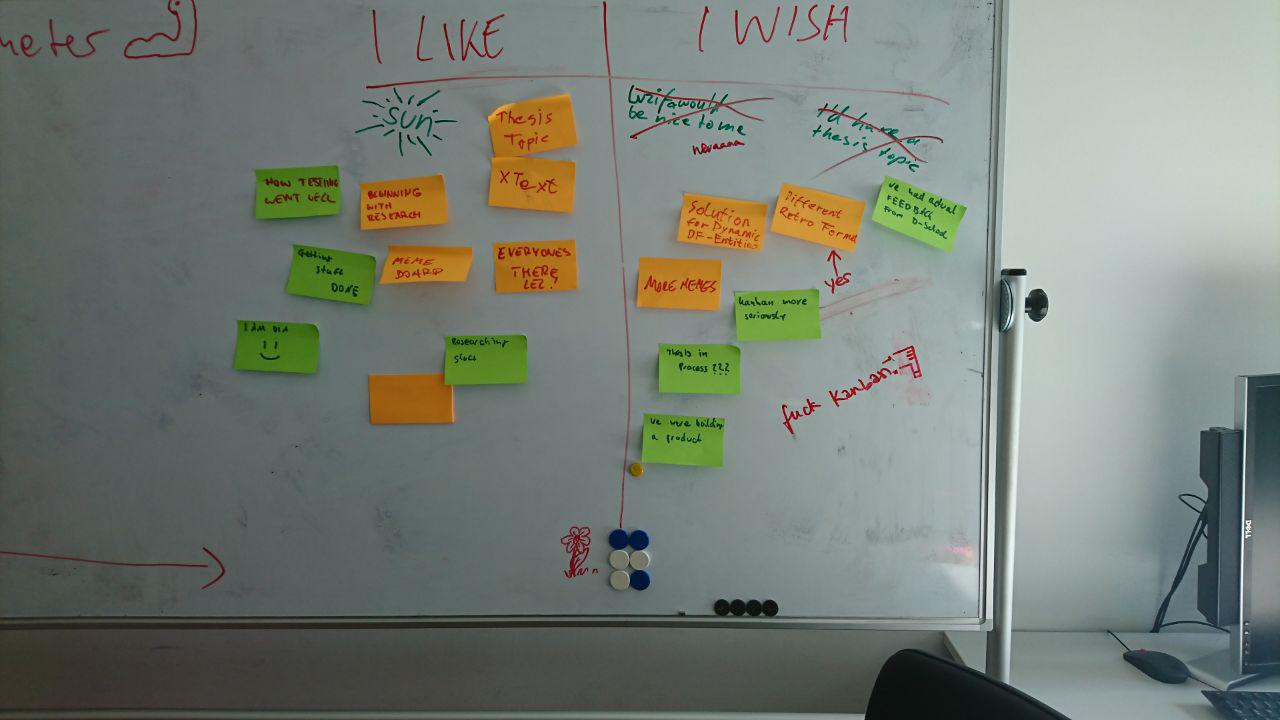 meter
I LIKE
I WISH
sun
Thesis
Topic
XText
HOW TESTING
WENT LELL
BEGINNING
WITH
RESEARCH
Getting
stuff
DONE
MEME
BOARD
EVERYONES
THERE
LEL!
I AM OLD
Researching
stuff
would
be nice to me
I'd have a
thesis topic
Solution
for Dynamic
DF-Entities
Different
Retro Forma
yes
we had actual
FEEDBACK
from D-School
MORE MEMES
Kanban more
seriously
Thesis in
Process ???
fuck Kanban!
we were building
a product
DELL